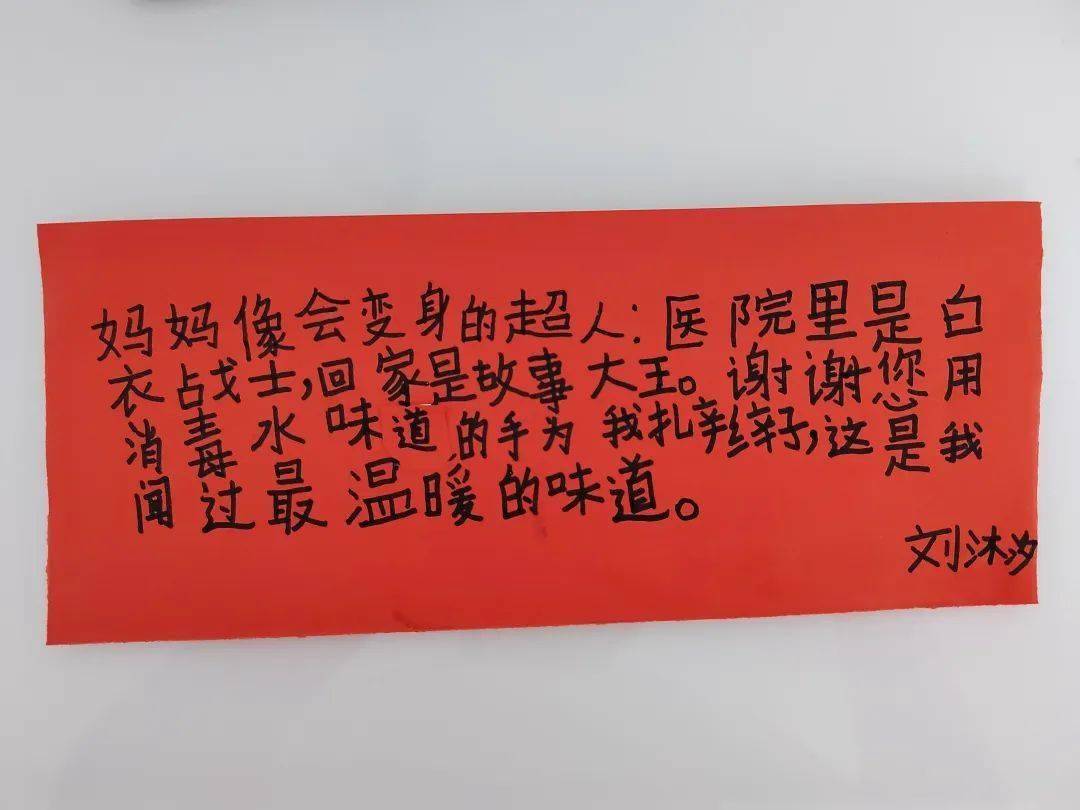 妈妈像会变身的超人：医院里是白
衣战士，回家是故事大王。谢谢您用
消毒水味道的手为我扎辫子，这是我
闻过最温暖的味道。
刘沐汐